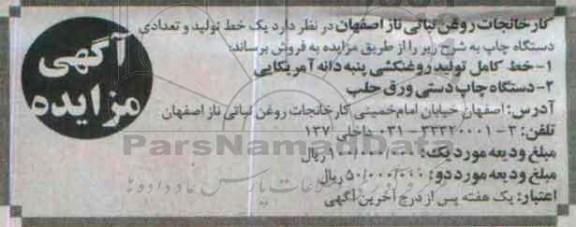 آگهی
مزایده
کارخانجات روغن نباتی ناز اصفهان در نظر دارد یک خط تولید و تعدادی
دستگاه چاپ به شرح زیر را از طریق مزایده به فروش برساند:
۱- خط کامل تولید روغنکشی پنبه دانه آمریکایی
۲- دستگاه چاپ دستی ورق حلب
آدرس: اصفهان خیابان امام‌خمینی کارخانجات روغن نباتی ناز اصفهان
تلفن: ۳ - ۳۳۳۲۰۰۰۱ - ۰۳۱ داخلی ۱۳۷
مبلغ ودیعه مورد یک: ۱۰۰/۰۰۰/۰۰۰ ریال
مبلغ ودیعه مورد دو: ۵۰/۰۰۰/۰۰۰ ریال
اعتبار: یک هفته پس از درج آخرین آگهی
ParsNamadData